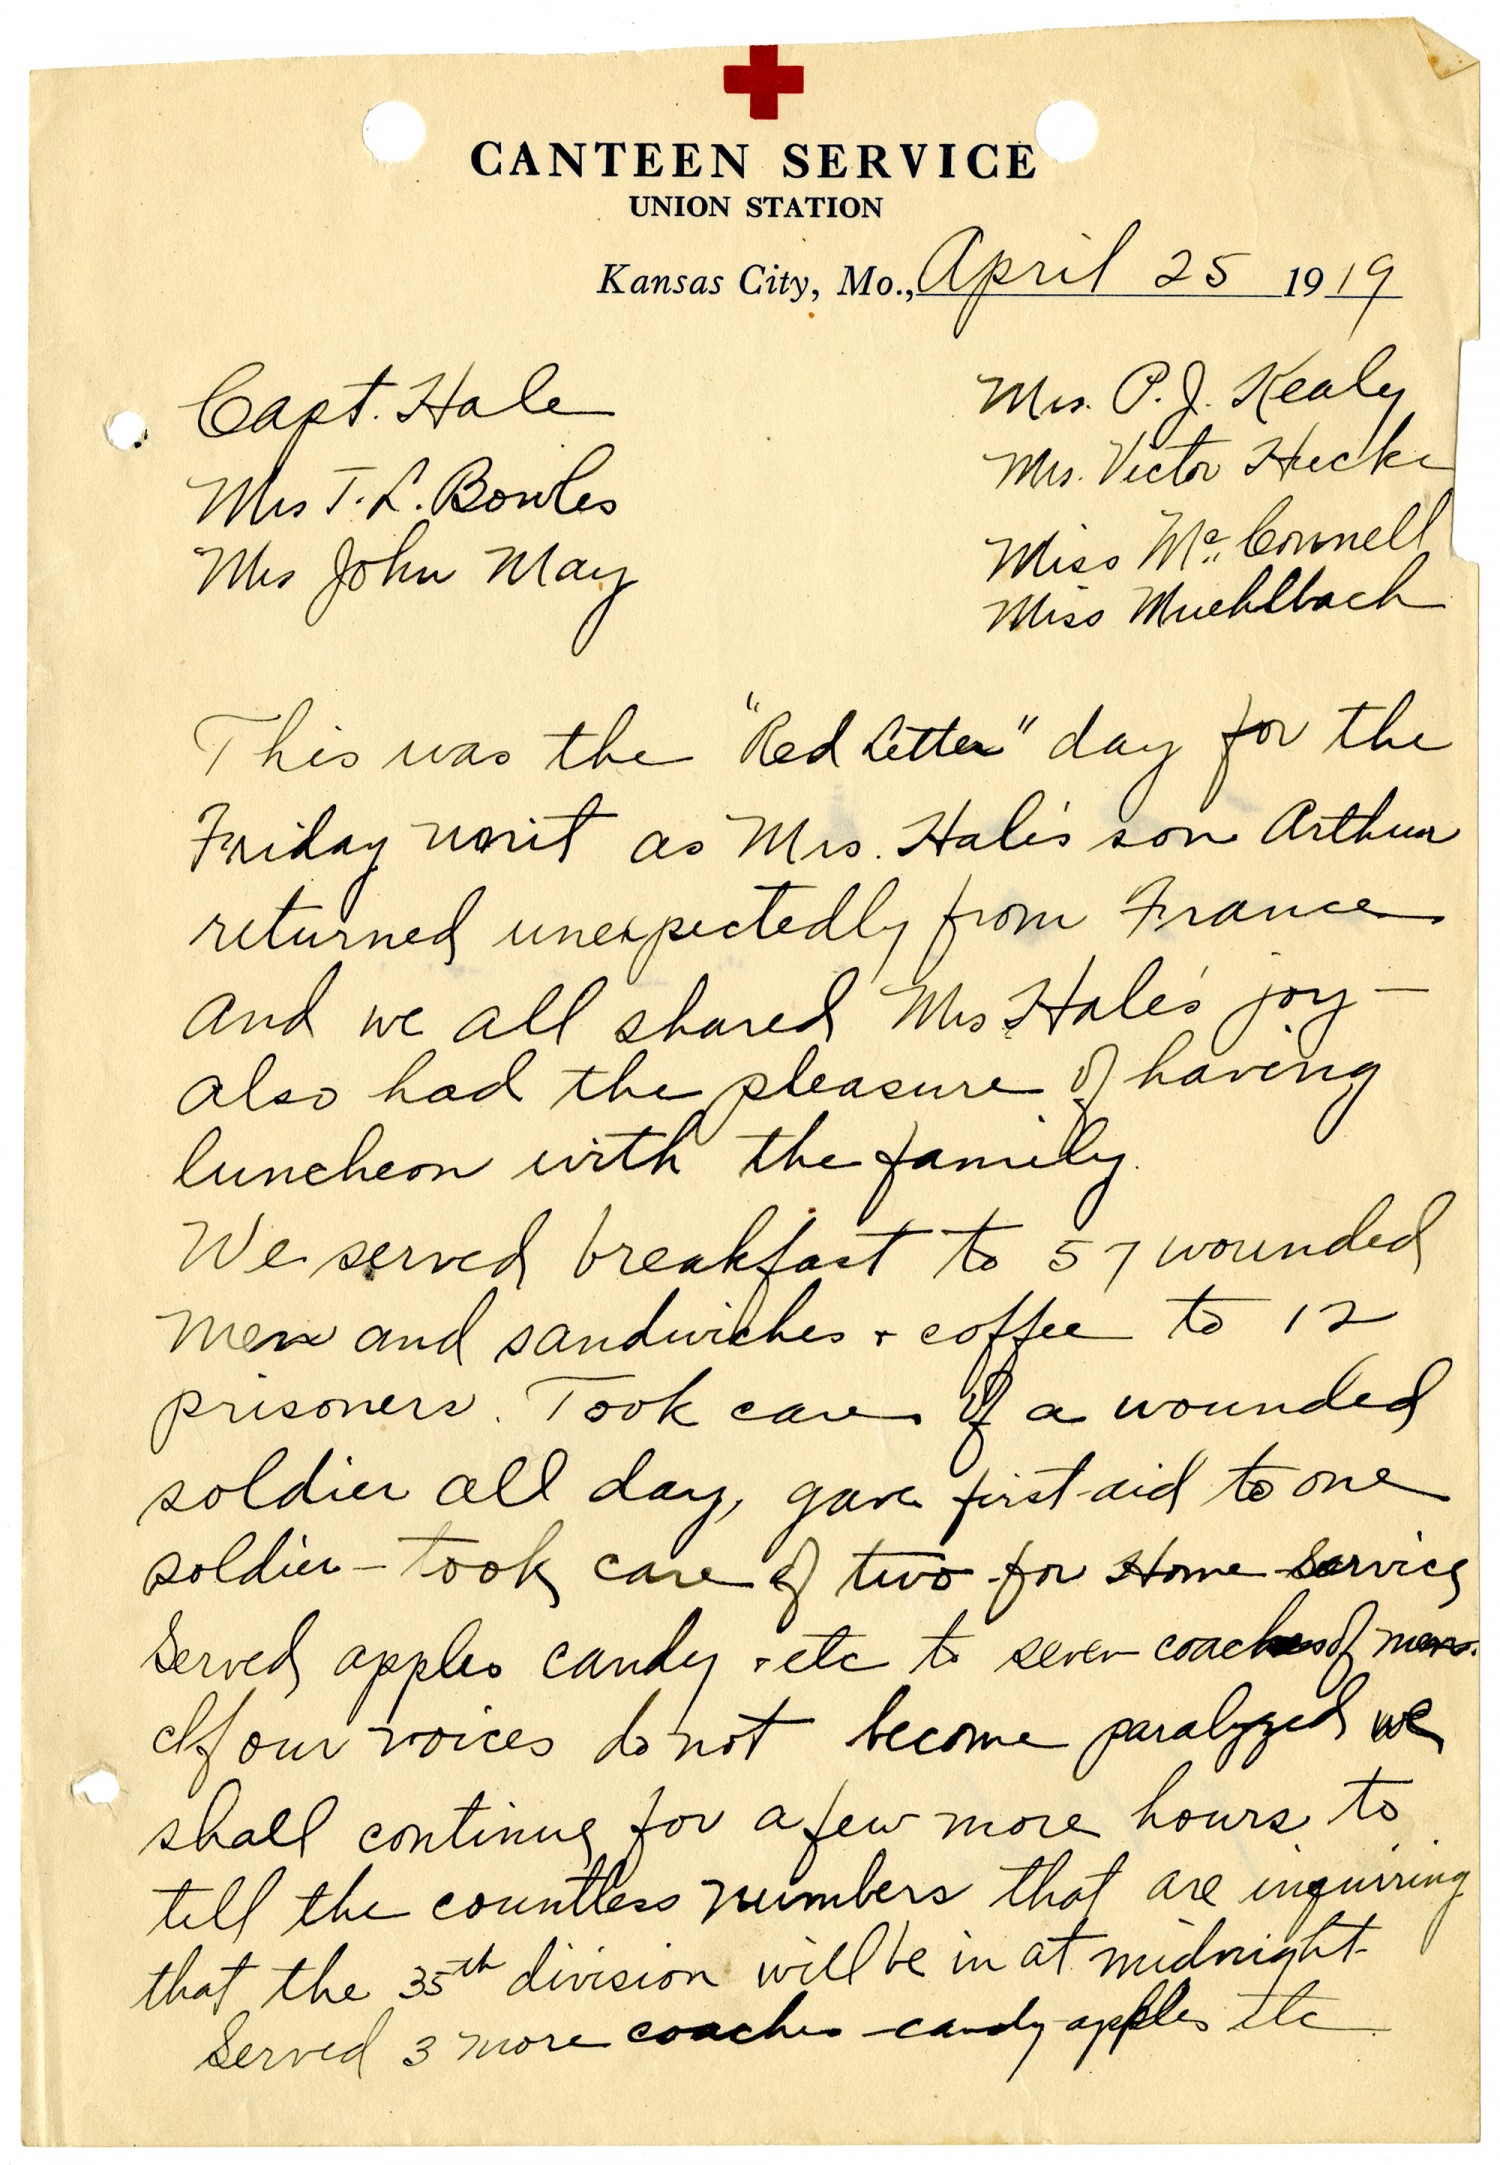 CANTEEN SERVICE
UNION STATION
Kansas City, Mo., April 25 1919
Capt. Hale
Mrs T. L. Bowles
Mrs John May
Mrs. P. J. Kealy
Mrs. Victor Hucke
Miss Mc Connell
Miss Muehlbach
This was the "Red Letter" day for the
Friday unit as Mrs. Hale's son Arthur
returned unexpectedly from France
and we all shared Mrs Hale's joy—
also had the pleasure of having
luncheon with the family.
We served breakfast to 57 wounded
men and sandwiches + coffee to 12
prisoners. Took care of a wounded
soldier all day, gave first-aid to one
soldier—took care of two for Home Service
Served apples candy + etc to seven coaches of men.
If our voices do not become paralyzed we
shall continue for a few more hours to
tell the countless numbers that are inquiring
that the 35th division will be in at midnight
Served 3 more coaches—candy-apples etc